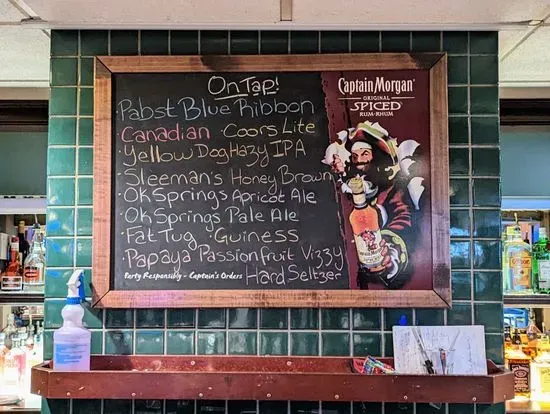 On Tap!
· Pabst Blue Ribbon
· Canadian · Coors Lite
· Yellow Dog Hazy IPA
· Sleeman's Honey Brown
· OK Springs Apricot Ale
· OK Springs Pale Ale
· Fat Tug · Guiness
· Papaya Passionfruit Vizzy
Hard Seltzer
Party Responsibly - Captain's Orders
Captain Morgan
ORIGINAL
SPICED
RUM·RHUM